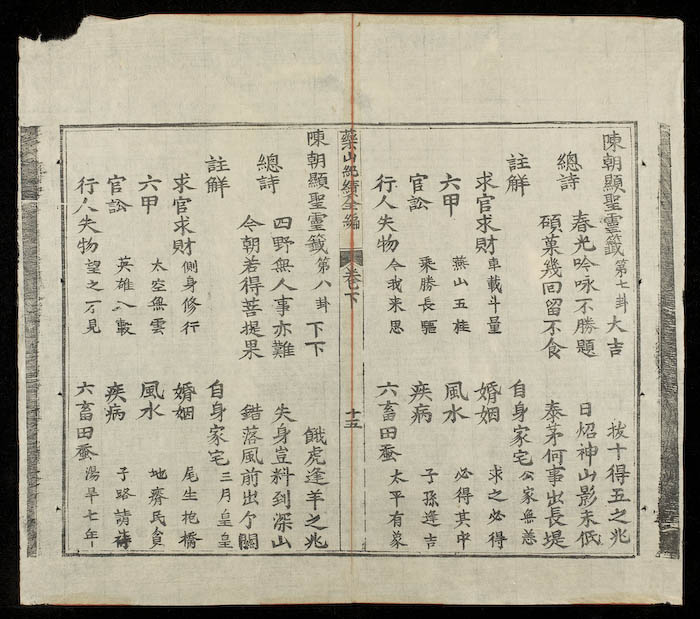 陳朝顯聖靈籤 第七卦 大吉 拔十得五之兆
總詩 春光吟咏不勝題 日炤神山影未低
碩菓幾回留不食 泰茅何事出長堤
註解 自身家宅 公家無恙
求官求財 車載斗量 婚姻 求之必得
六甲 燕山五桂 風水 必得其中
官訟 乘勝長驅 疾病 子孫逢吉
行人失物 今我来思 六畜田蚕 太平有象
藥山紀績全編 卷下 十五
陳朝顯聖靈籤 第八卦 下下 餓虎逢羊之兆
總詩 四野無人事亦難 失身豈料到深山
今朝若得菩提果 錯落風前出夕關
註解 自身家宅 三月皇皇
求官求財 側身修行 婚姻 尾生抱橋
六甲 太空無雲 風水 地瘠民貧
官訟 英雄入彀 疾病 子路請祷
行人失物 望之不見 六畜田蚕 湯旱七年